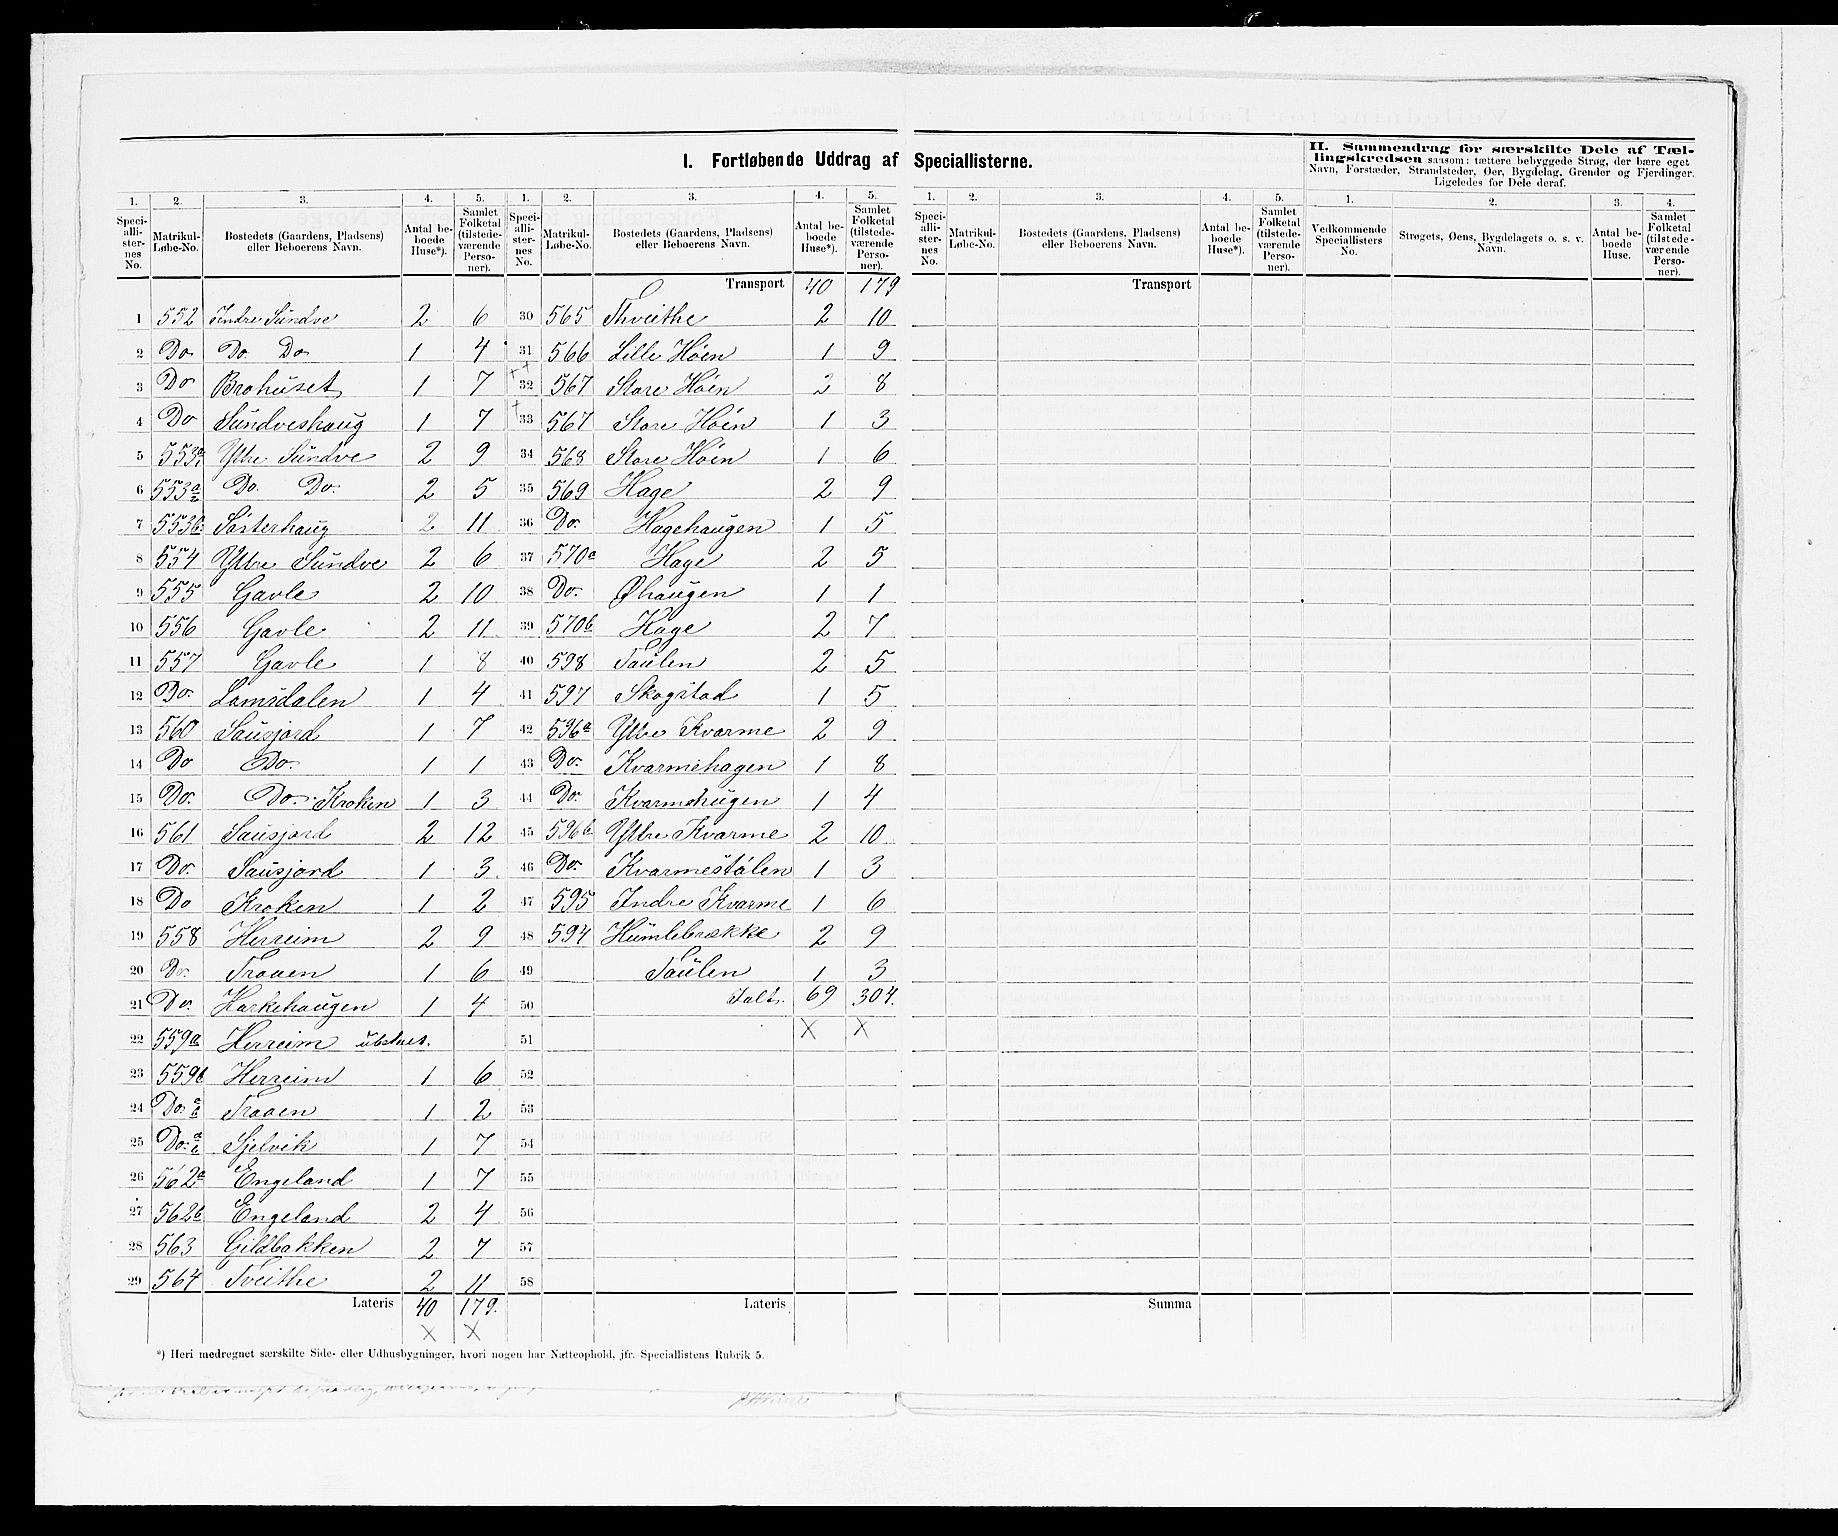 I. Fortløbende Uddrag af Speciallisterne.
II. Sammendrag for særskilte Dele af Tællingskredsen saasom: tættere bebyggede Strøg, der bære eget
Navn, Forstæder, Strandsteder, Øer, Bygdelag, Grender og Fjerdinger.
Ligeledes for Dele deraf.
1. 2. 3. 4. 5. 1. 2. 3. 4. 5. 1. 2. 3. 4. 5. 1. 2. 3. 4.
Speciallisternes No. Matrikul-Løbe-No. Bostedets (Gaardens, Pladsens) eller Beboerens Navn. Antal beboede Huse*). Samlet Folketal (tilstedeværende Personer).
Speciallisternes No. Matrikul-Løbe-No. Bostedets (Gaardens, Pladsens) eller Beboerens Navn. Antal beboede Huse*). Samlet Folketal (tilstedeværende Personer).
Speciallisternes No. Matrikul-Løbe-No. Bostedets (Gaardens, Pladsens) eller Beboerens Navn. Antal beboede Huse*). Samlet Folketal (tilstedeværende Personer).
Vedkommende Speciallisters No. Strøgets, Øens, Bygdelagets o. s. v. Navn. Antal beboede Huse. Samlet Folketal (tilstedeværende Personer).
1 552 Indre Sundve 2 6
2 Do Do Do 1 4
3 Do Brohuset 1 7
4 Do Sundveshaug 1 7
5 553a1 Ytre Sundve 2 9
6 553a2 Do. Do. 2 5
7 553b Sösterhaug 2 11
8 554 Ytre Sundve 2 6
9 555 Gavle 2 10
10 556 Gavle 2 11
11 557 Gavle 1 8
12 Do. Lamsdalen 1 4
13 560 Sausjord 1 7
14 Do Do. 1 1
15 Do. Do. Kroken 1 3
16 561 Sausjord 2 12
17 Do. Sausjord 1 3
18 Do Kroken 1 2
19 558 Herreim 2 9
20 Do. Traaen 1 6
21 Do. Harkehaugen 1 4
22 559a Herreim
23 559b Herreim 1 6
24 Do. a b Traaen 1 2
25 Do. a b Sjelvik 1 7
26 562a Engeland 1 7
27 562b Engeland 2 4
28 563 Gildbakken 2 7
29 564 Tveithe 2 11
Lateris 40 179.
X X
Transport 40 179
30 565 Thveithe 2 10
31 566 Lille Höen 1 9
32 567 Store Höen 2 8
33 567 Store Höen 1 3
34 568 Store Höen 1 6
35 569 Hage 2 9
36 Do. Hagehaugen 1 5
37 570a Hage 2 5
38 Do. Øhaugen 1 1
39 570b Hage 2 7
40 598 Taulen 2 5
41 597 Skogstad 1 5
42 596a Ytre Kvarme 2 9
43 Do. Kvarmehagen 1 8
44 Do. Kvarmehugen 1 4
45 596b Ytre Kvarme 2 10
46 Do. Kvarmestölen 1 3
47 595 Indre Kvarme 1 6
48 594 Humlebrække 2 9
49 Taulen 1 3
50 Ialt. 69 304.
51 X X
52
53
54
55
56
57
58
Lateris
Transport
Summa
*) Heri medregnet særskilte Side- eller Udhusbygninger, hvori nogen har Natteophold, jfr. Speciallistens Rubrik 5.